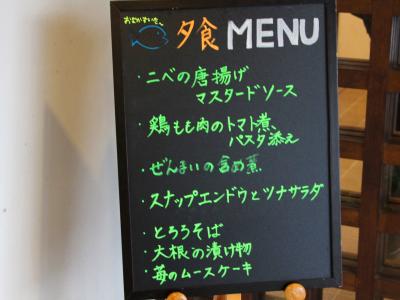 おなかすいた〜
夕食 MENU
・ニベの唐揚げ
マスタードソース
・鶏もも肉のトマト煮、
パスタ添え
・ぜんまいの含め煮
・スナップエンドウとツナサラダ
・とろろそば
・大根の漬け物
・苺のムースケーキ